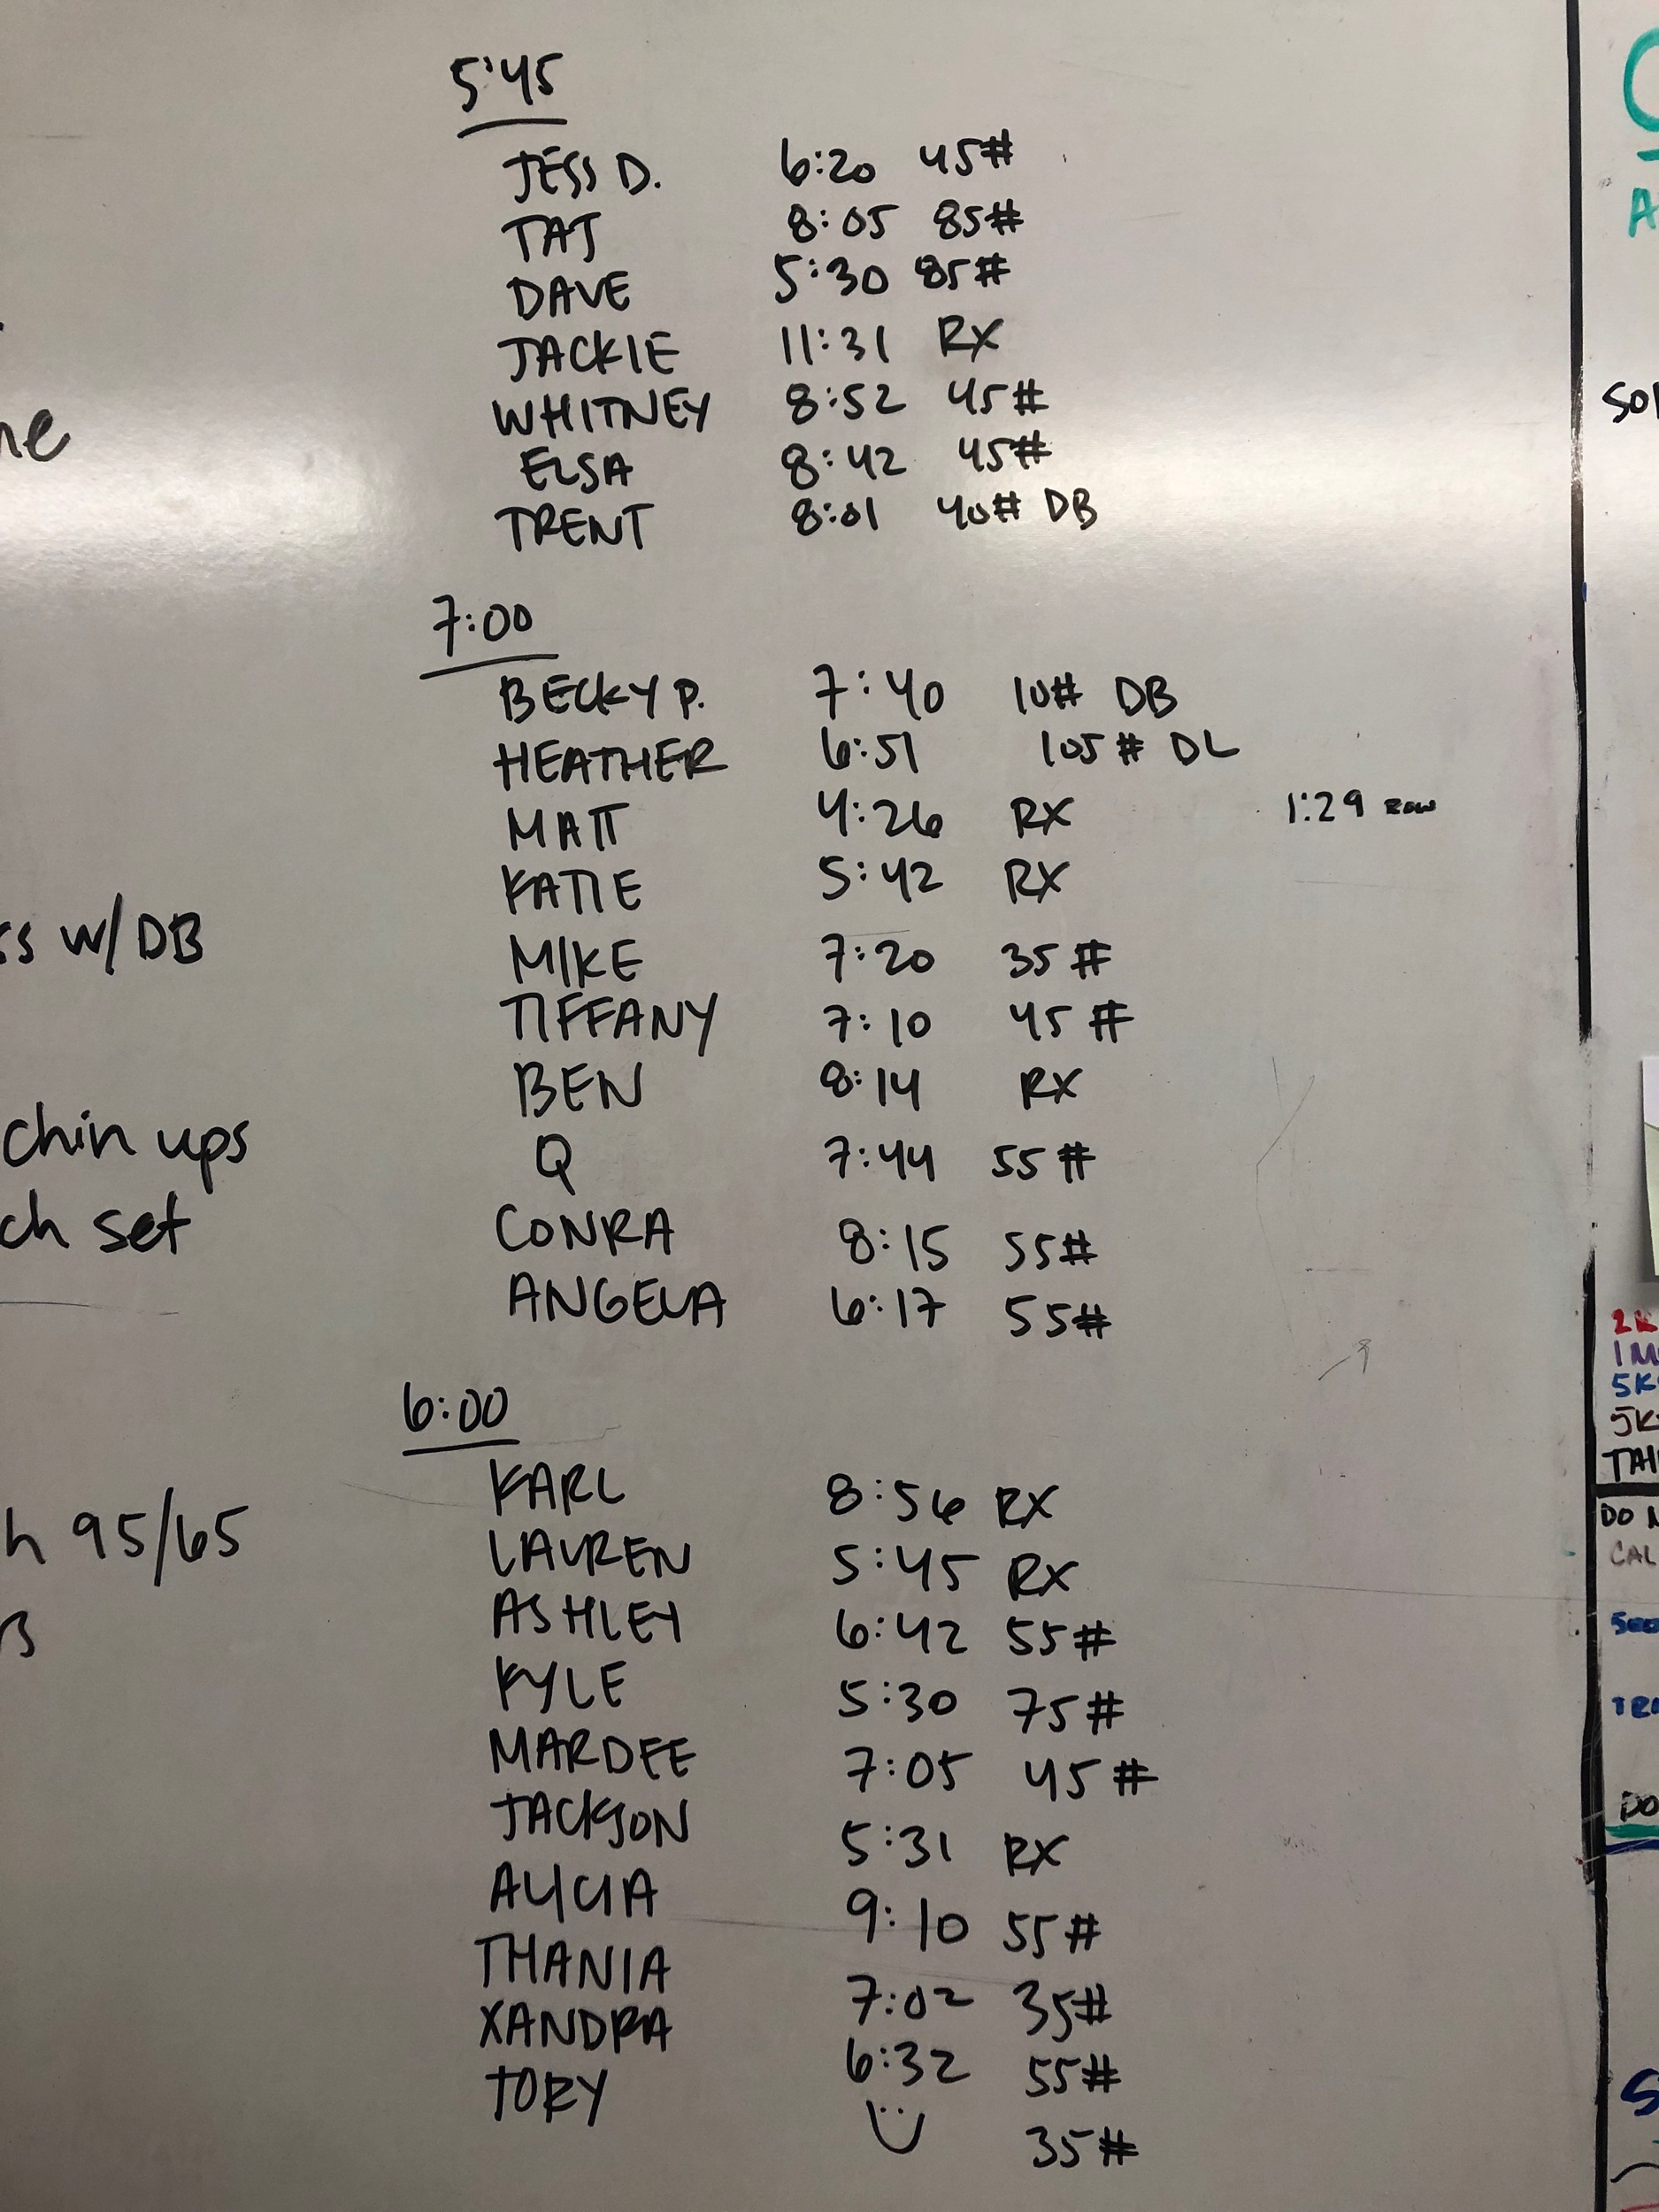 5:45
JESS D. 6:20 45#
TAJ 8:05 85#
DAVE 5:30 85#
JACKIE 11:31 RX
WHITNEY 8:52 45#
ELSA 8:42 45#
TRENT 8:01 40# DB
7:00
BECKY P. 7:40 10# DB
HEATHER 6:51 105# DL
MATT 4:26 RX 1:29 ROW
KATIE 5:42 RX
MIKE 7:20 35#
TIFFANY 7:10 45#
BEN 8:14 RX
Q 7:44 55#
CONRA 8:15 55#
ANGELA 6:17 55#
6:00
KARL 8:56 RX
LAUREN 5:45 RX
ASHLEY 6:42 55#
KYLE 5:30 75#
MARDEE 7:05 45#
JACKSON 5:31 RX
ALICIA 9:10 55#
THANIA 7:02 35#
XANDRA 6:32 55#
TORY 35#
w/ DB
chin ups
set
95/65
2K
5K
5K
DO